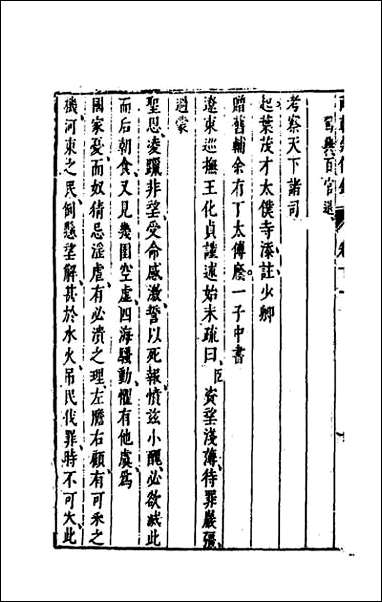 駕與百官避
考察天下諸司
起葉茂才太僕寺添註少卿
贈舊輔余有丁太傅廕一子中書
遼東巡撫王化貞謹述始末疏曰臣資望淺薄待罪嚴疆
過蒙
聖恩凌躐非望受命感激誓以死報憤玆小醜必欲滅此
而后朝食又見幾國空虛四海騷動懼有他虞爲
國家憂而奴猜忌淫虐有必潰之理左瞻右顧有可乘之
機河東之民倒懸望解甚於水火吊民伐罪時不可失此